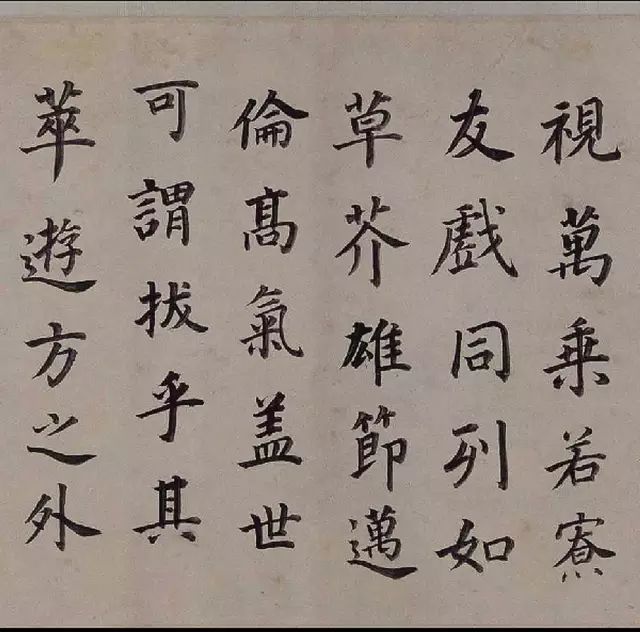 視萬乘若寮
友戲同列如
草芥雄節邁
倫髙氣盖世
可謂拔乎其
萃遊方之外